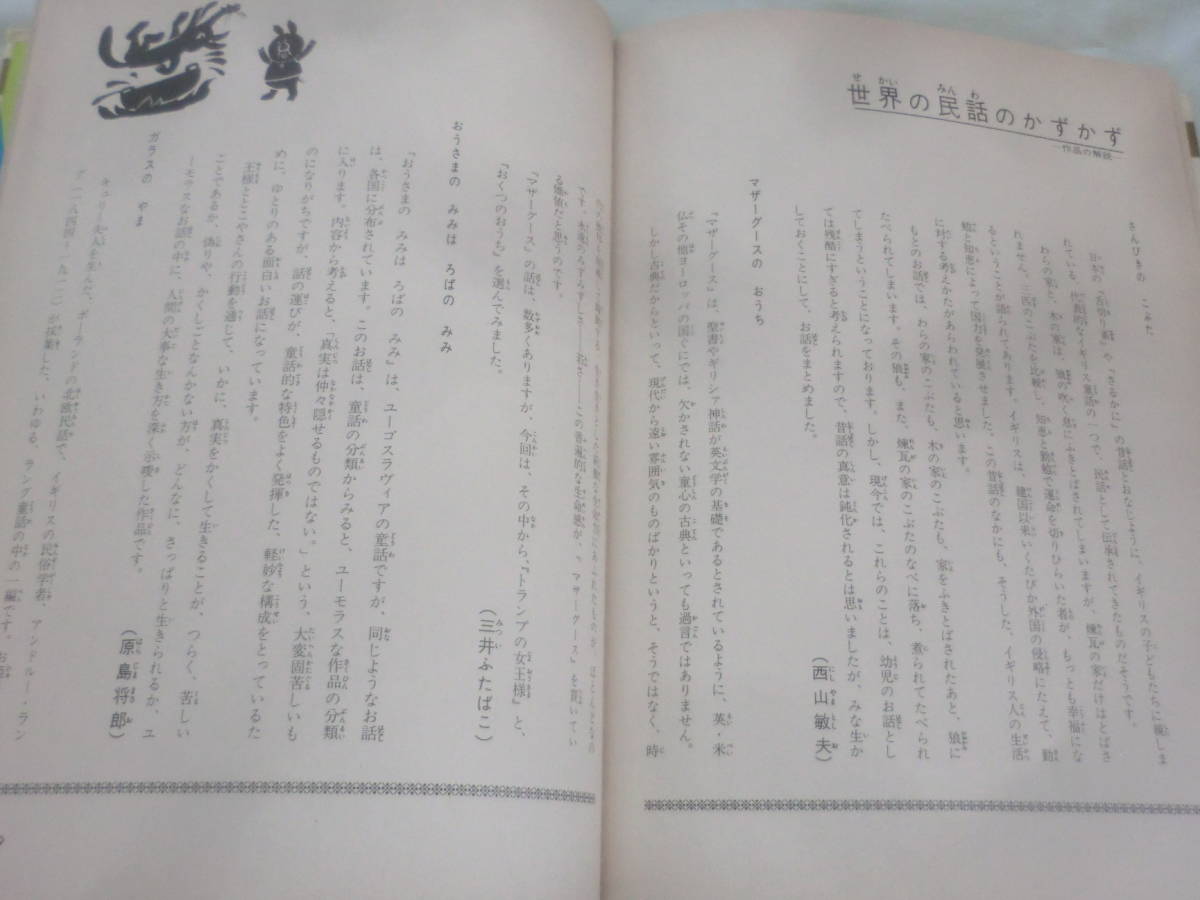 世界の民話のかずかず
―作品の解説―
さんびきの こぶた
日本の「舌切り雀」や「さるかに」の昔話とおなじように、イギリスの子どもたちに
れている、代表的なイギリス童話の一つで、民話として伝承されてきたものだそうです。
わらの家と、木の家は、狼の吹く息にふきとばされてしまいますが、煉瓦の家だけはとばさ
れません。三匹のこぶたを比較し、知恵と勤勉で運命を切りひらいた者が、もっとも幸福にな
るということが語られてあります。イギリスは、建国以来いくたびか外国の侵略にたえて、勤
勉と知恵によって国力を発展させました。この昔話のなかにも、そうした、イギリス人の生活
に対する考えかたがあらわれていると思います。
もとのお話では、わらの家のこぶたも、木の家のこぶたも、家をふきとばされたあと、狼に
たべられてしまいます。その狼も、また、煉瓦の家のこぶたのなべに落ち、煮られてたべられ
てしまうということになっております。しかし、現今では、これらのことは、幼児のお話とし
ては残酷にすぎると考えられますので、昔話の真意は鈍化されるとは思いましたが、みな生か
しておくことにして、お話をまとめました。
（西山敏夫）
マザーグースの おうち
『マザーグース』は、聖書やギリシァ神話が英文学の基礎であるとされているように、英・米・
仏その他ヨーロッパの国ぐにでは、欠かされない童心の古典といっても過言ではありません。
しかし古典だからといって、現代から遠い雰囲気のものばかりというと、そうではなく、時
です。
この普遍的な生命感が、マザーグースを
る価値だと思うのです。
『マザーグース』の話は、数多くありますが、今回は、その中から、「トランプの女王様」と、
「おくつのおうち」を選んでみました。
（三井ふたばこ）
おうさまの みみは ろばの みみ
「おうさまの みみは ろばの みみ」は、ユーゴスラヴィアの童話ですが、同じようなお話
は、各国に分布されています。このお話は、童話の分類からみると、ユーモラスな作品の分類
に入ります。内容から考えると、「真実は仲々隠せるものではない。」という、大変固苦しいも
のになりがちですが、話の運びが、童話的な特色をよく発揮した、軽妙な構成をとっているた
めに、ゆとりのある面白いお話になっています。
王様ととこやさんの行動を通じて、いかに、真実をかくして生きることが、つらく、苦しい
ことであるか、偽りや、かくしごとなんかない方が、どんなに、さっぱりと生きられるか、ユ
ーモラスなお話の中に、人間の大事な生き方を深く示唆した作品です。
（原島将郎）
ガラスの やま
キュリー夫人を生んだ、ポーランドの北欧民話で、イギリスの民俗学者、アンドルー・ラン
グ（一八四四―一九一二）が採集した、いわゆる、ラング童話の中の一編です。